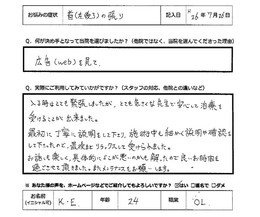 お悩みの症状 首(左後ろ)の張り 記入日 H26年7月25日
Q. 何が決め手となって当院を選びましたか？(他院ではなく、当院を選んでくださった理由)
広告(web)を見て、
Q. 実際にご利用してみていかがですか？(スタッフの対応、他院との違いなど)
入る時はとても緊張しましたが、とても気さくな先生で安心して治療を
受けることが出来ました。
最初に丁寧に説明をして下さり、施術中も細かく説明や確認を
して下さったので、最後までリラックスして受けられました。
お話も楽しく、具体的にどこが悪いのかも解ったので良いお時間を
過ごさせて頂きました。またメンテナンスもお願いします。
※ あなた様の声を、ホームページなどでご紹介してもよろしいですか？ はい 匿名で ダメ
お名前 (イニシャル可) K.E. 年齢 24 職業 OL.